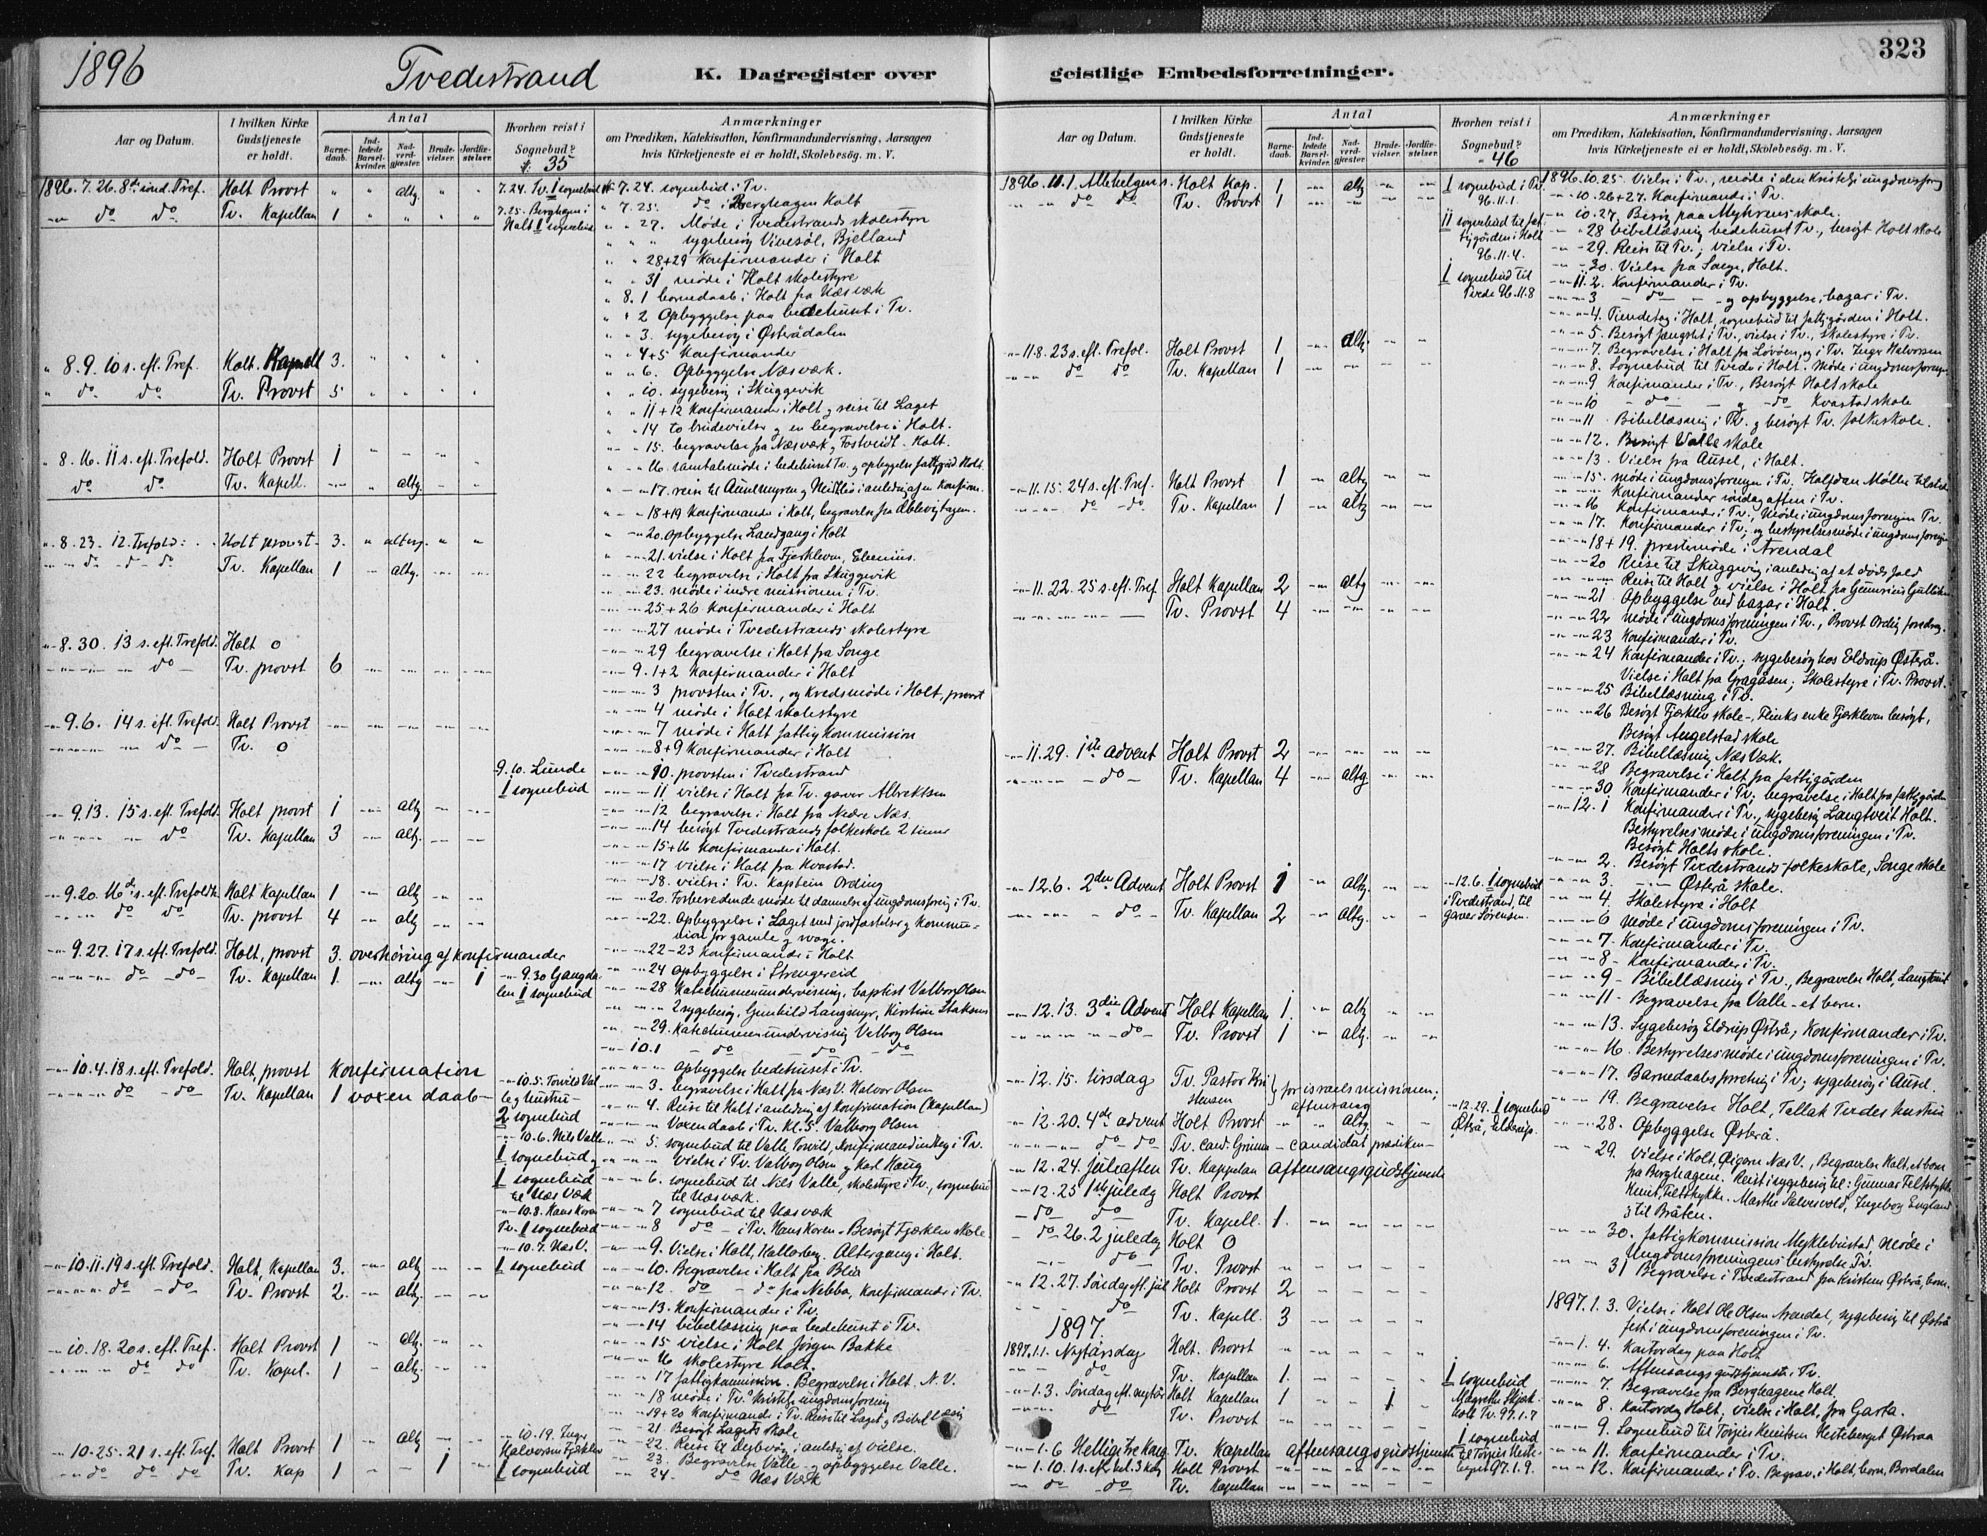 1896
Tvedestrand
K. Dagregister over
Aar og Datum.
I hvilken Kirke Gudstjeneste er holdt.
Antal
Barnedaab.
Indledede Barselkvinder.
Nadverdgjester
Brudevielser.
Jordfæstelser.
Hvorhen reist i Sognebud?
35
Anmærkninger
om Prædiken, Katekisation, Konfirmandundervisning, Aarsagen
hvis Kirketjeneste ei er holdt, Skolebesøg m. V.
1896. 7. 26. 8de sönd. Tref. Holt Provst " " altg. " "
do do Tv. Kapellan 1 " " " "
8. 9. 10 s. eft. Tref. Holt. Kapell 3.
do do Tv. Provst 5
8. 16. 11 s. eft. Trefold. Holt Provst 1
do do Tv. Kapell. altg.
8. 23. 12. Trefold: Holt provst 3. " alterg. " "
do Tv. Kapellan 1 altg.
8. 30. 13 s. eft. Trefold. Holt 0
do Tv. provst 6
9. 6. 14 s. eft. Trefold. Holt Provst
do Tv. 0
9. 13. 15 s. eft. Trefold. Holt provst 1 altg
do Tv. Kapellan 3 altg.
9. 20. 16de s. eft. Trefoldh. Holt Kapellan 1 altg
do do Tv. provst 4 altg
9. 27. 17 s. eft. Trefold. Holt, provst 3. overhöring af konfirmander
do do Tv. Kapellan 1. altg 1
10. 4. 18 s. eft. Trefold. Holt, provst Konfirmation
do do Tv. Kapellan 1 voxen daab
10. 11. 19 s. eft Trefold. Holt, Kapellan 3. altg
do do Tv. Provst 2. altg.
10. 18. 20 s. eft. Tref. Holt Provst 1 altg.
do do Tv. Kapel. 1 altg.
10. 25. 21 s. eft. Tref. Holt Provst 1 altg
do do Tv. Kap 1 1
7. 24. Tv. 1 sognebud
7. 25. Berghagen i
Holt 1 sognebud
9. 10. Lunde
1 sognebud
9. 30 Gangda
len 1 sognebud
10. 5. Torvild Val
le og hustru
2 sognebud
10. 6. Nils Valle
1 sognebud og
1 sognebud
til Næs Værk
10. 8. Hans Koren
Tv. 1 sognebud
10. 7. Næs V.
1 sognebud
10. 19. Inger
Halvorsen Fjæreklev
1 sognebud
7. 24. sognebud i Tv.
7. 25. do i Berghagen Holt
27. Møde i Tvedestrands skolestyre
sygebesøg Vivesöl, Bjelland
28+29 Konfirmander i Holt
31 møde i Holt skolestyre
8. 1 barnedaab i Holt fra Næsværk
2 Opbyggelse paa bedehuset i Tv.
3. sygebesøg i Østerådalen
4+5 Konfirmander
6. Opbyggelse Næsværk.
10. sygebesøg i Skuggevik
11+12 Konfirmander i Holt og reise til Laget
14 to brudevielser og en begravelse i Holt.
15. begravelse fra Næsværk og Fosteveidt. Holt.
16 samtalemøde i bedehuset Tv. og opbyggelse fattiggård Holt.
18+19 Konfirmander i Holt, begravelse fra
20. Opbyggelse Landgang i Holt
21. vielse i Holt fra Fjærekleven,
22 begravelse i Holt fra Skuggevik
23. møde i indre missionen i Tv.
25+26 Konfirmander i Holt
27 møde i Tvedestrands skolestyre
29 begravelse i Holt fra Songe
9. 1+2 Konfirmander i Holt
3 provsten i Tv., og Kredsmøde i Holt, provst
4 møde i Holt skolestyre
7 møde i Holt fattigkommission
8+9 Konfirmander i Holt
10. provsten i Tvedestrand
11 vielse i Holt fra Tv. garver Albrektsen
12 begravelse i Holt fra Nedre Næs.
14 besøgt Tvedestrands folkeskole 2 timer
15+16 Konfirmander i Holt.
17 vielse i Holt fra Kvastad.
18. vielse i Tv. Kaptein Ording
20. Forberedende møde til dannelse af ungdomsforeng i Tv.
22. Opbyggelse i Laget med jordfæstelse og kommu-
nion for gamle og svage.
22-23 Konfirmander i Holt
24 Opbyggelse i Strengereid
28 Katechumenundervisning, baptist Valborg Olsen
29. Katechumenundervisning Valborg Olsen
10. 1 do do do
opbyggelse bedehuset i Tv.
3. begravelse i Holt fra Næs V. Halvor Olsen
4. Reise til Holt i anledning af Konfirmation (Kapellan)
Voxendaab i Tv. Kl. 5. Valborg Olsen
5. sognebud til Valle Torvild, Konfirmandindtegn. i Tv.
Vielse i Tv. Valborg Olsen og Karl Haug
6. sognebud til Nils Valle, skolestyre i Tv., sognebud
til Næsværk.
7 sognebud til Næsværk
8 do i Tv. Hans Koren. Besøgt Fjæreklev skole
9. Vielse i Holt, . Altergang i Holt.
10. Begravelse i Holt fra Blia
12. do do fra Nebba, Konfirmander i Tv.
13. Konfirmander i Tv.
14 bibellæsning paa bedehuset i Tv.
15 vielse i Holt Jørgen Bakke
16 skolestyre Holt.
17 fattigkommission. Begravelse i Holt. N. V.
18 møde i Tv.s Kristelige ungdomsforening
19+20 Konfirmander i Tv. Reise til Laget og Bibellæsn
21 Besøgt Lagets skole
22. Reise til Dybvåg i anledng af vielse.
23. Begravelse Valle og opbyggelse Valle.
24. do Næs Værk
geistlige Embedsforretninger.
323
Aar og Datum.
I hvilken Kirke Gudstjeneste er holdt.
Antal
Barnedaab.
Indledede Barselkvinder.
Nadverdgjester.
Brudevielser.
Jordfæstelser.
Hvorhen reist i Sognebud?
46
Anmærkninger
om Prædiken, Katekisation, Konfirmandundervisning, Aarsagen
hvis Kirketjeneste ei er holdt, Skolebesøg m. V.
1896. 11. 1. Allehelgens. Holt Kap. 1 altg
do do Tv. Provst 1
11. 8. 23 s. eft. Trefol. Holt Provst 1 altg
do do Tv. Kapellan 1
11. 15. 24 s. eft. Tref. Holt Provst 1 altg
do do Tv. Kapellan 1 altg
11. 22. 25 s. eft. Tref. Holt Kapellan 2 altg
Tv. Provst 4
11. 29. 1ste advent Holt Provst 2
do Tv. Kapellan 4 altg
12. 6. 2den Advent Holt Provst 1 altg
do Tv. Kapellan 2 altg
12. 13. 3die Advent Holt Kapellan 1. altg
do Tv. Provst 1 altg.
12. 15. Tirsdag Tv. Pastor Kri
stensen } for israelsmissionen;
aftensang
12. 20. 4de advent Holt Provst altg
do do Tv. Cand. candidat prædiken
12. 24. juleaften Tv. Kappelan aftensangsgudstjeneste
12. 25 1ste juledg Holt Provst
do do Tv. Kapell. 1.
do 26. 2 juledag Holt 0
do Tv. Provst
12. 27. Söndag eft. jul Holt Provst 2
do Tv. Kapell. 3
1897.
1897. 1. 1. Nytårsdag Holt. Provst
do Tv. Kapellan 1.
1. 3. Söndag eft. nytår Holt Kapellan 1 1
do Tv. Provst
1. 6 Hellig tre Kong. Tv. Kapellan aftensangsgudstjeneste
1. 10. 1 s. eft. hel. 3 kg Holt Provst
do do Tv. Kapellan
1 sognebud i Tv.
96. 11. 1
11 sognebud til fat
tiggården i Holt
96. 11. 4.
1 sognebud til
Tvede 96. 11. 8
12. 6. 1 sognebud
i Tvedestrand, til
garver Sörensen.
12. 29. 1 sognebud
Østerå, Eldrup.
1 sognebud
Magrethe
Holt Tv. 97. 1. 7
1 sognebud
til Torjus Heste-
berget 97. 1. 9.
1896. 10. 25. Vielse i Tv., møde i den Kristelig ungdomsforeng
10. 26+27. Konfirmand i Tv.
10. 27. Besøg paa Myhrens skole.
28 bibellæsnig bedehuset Tv., besøgt Holt skole
29. Reise til Tv., vielse i Tv.
30. Vielse fra Songe, Holt.
11. 2. Konfirmander i Tv.
3 do og opbyggelse, bazar i Tv.
4. Tiendetag i Holt, sognebud til fattiggården i Holt.
5. Besøgt fængslet i Tv., vielse i Tv., Skolestyre i Tv.
7. Begravelse i Holt fra Lövöen, og i Tv. Inger Halvorsen
8. Sognebud til Tvede i Holt. Møde i ungdomsforengn
9 Konfirmander i Tv., Besøgt Holt skole
10 do og do Kvastad skole
11. Bibellæsnig i Tv. og besøgt Tv. folkeskole.
12. Besøgt Valle skole
13. Vielse fra Ausel, i Holt.
15. møde i ungdomsforengn i Tv. Halfdan Møller tilstede
Konfirmander söndag aften i Tv.
16 Konfirmander i Tv., Møde i ungdomsforengen Tv.
17. Konfirmander i Tv. og bestyrelsesmøde i ungdomsforengn
18+19. præstemøde i Arendal
20 Reise til Skuggevig i anledng af et dødsfald
Reise til Holt og vielse i Holt fra
21 Opbyggelse ved bazar i Holt
22 møde i ungdomsforeningen i Tv., Provst Ording foredrag.
23 Konfirmander i Tv.
24 Konfirmander i Tv., sygebesøg hos Eldrup Østerå.
Vielse i Holt fra Gragåsen; Skolestyre i Tv. Provst.
25 Bibellæsning i Tv.
26 Besøgt Fjæreklev skole, enke Fjæreklev besøgt,
Besøgt Angelstad skole
27. Bibellæsning Næs Værk.
28 Begravelse i Holt fra fattigården
30 Konfirmander i Tv., begravelse i Holt fra fattiggården
12. 1 Konfirmander i Tv., sygebesøg Langtveit Holt.
Bestyrelsesmøde i ungdomsforeningen i Tv.
Besøgt Holts skole.
2. Besøgt Tvedestrands folkeskole, Songe skole
3. Østerå skole.
4. Skolestyre i Holt
6 Møde i ungdomsforeningen i Tv.
7. Konfirmander i Tv.
8 Konfirmander i Tv.
9 Bibellæsning i Tv., Begravelse Holt, Langtveit
11 Begravelse fra Valle et barn.
13. Sygebesøg Eldrup Østerå, Konfirmander i Tv.
16. Bestyrelsesmøde i ungdomsforeningen i Tv.
17. Barnedaabsforretng i Tv., sygebesøg i Ausel.
19. Begravelse Holt, Tellak Tvedes hustru
28. Opbyggelse Østerå.
29. Vielse i Holt, Næs V., Begravelse Holt, et barn
fra Berghagen. Reist i sygebesøg til: Gunnar Feltstykke,
Knut Feltstykke. Marthe , Ingeborg England
og til Bråten.
30. fattigkommission Myklebustad, Møde i
Ungdomsforeningens bestyrelse Tv.
31 Begravelse i Tvedestrand fra Kristen Østerå, barn.
1897. 1. 3. Vielse i Holt Ole Olsen Arendal, sygebesøg til Østerå
fest i ungdomsforeningen i Tv.
1. 4. Kontordag paa Holt
6. Aftensangsgudstjeneste Tv.
7. Begravelse fra Berghagene Holt.
8. Kontordag Holt, vielse i Holt, fra Garta.
9. Sognebud til Torjus Knutsen Hesteberget Østeraa
11. Konfirmander i Tv.
12. Konfirmander i Tv. Begrav. i Holt, barn, Bordalen